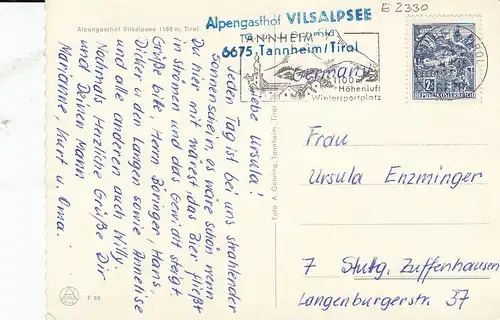 E 2330
Alpengasthof Vilsalpsee 1168 m, Tirol
Alpengasthof VILSALPSEE
6675 Tannheim/Tirol
TANNHEIM
1100 m
Höhenluft
Wintersportplatz
Germany
REPUBLIK ÖSTERREICH
Liebe Ursula!
Jeden Tag ist bei uns strahlender
Sonnenschein, es wäre schön wenn
Du hier mit wärest, das Bier fließt
in Strömen und das Gewicht steigt
Grüße bitte, Herrn Böringer, Hans,
Dicker u den Langen sowie Annelise
und alle anderen auch Willy.
Nochmals Herzliche Grüße Dir
und Deinen Mann
Marianne, Kurt u. Oma.
Foto A. Gehring, Tannheim, Tirol
Frau
Ursula Enzminger
7 Stuttg. Zuffenhausen
Langenburgerstr. 37
F 93